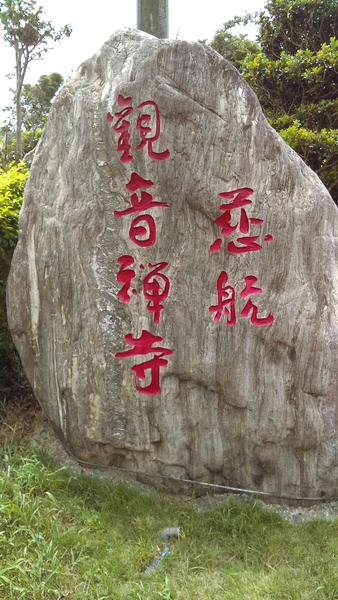 慈航
觀音禪寺